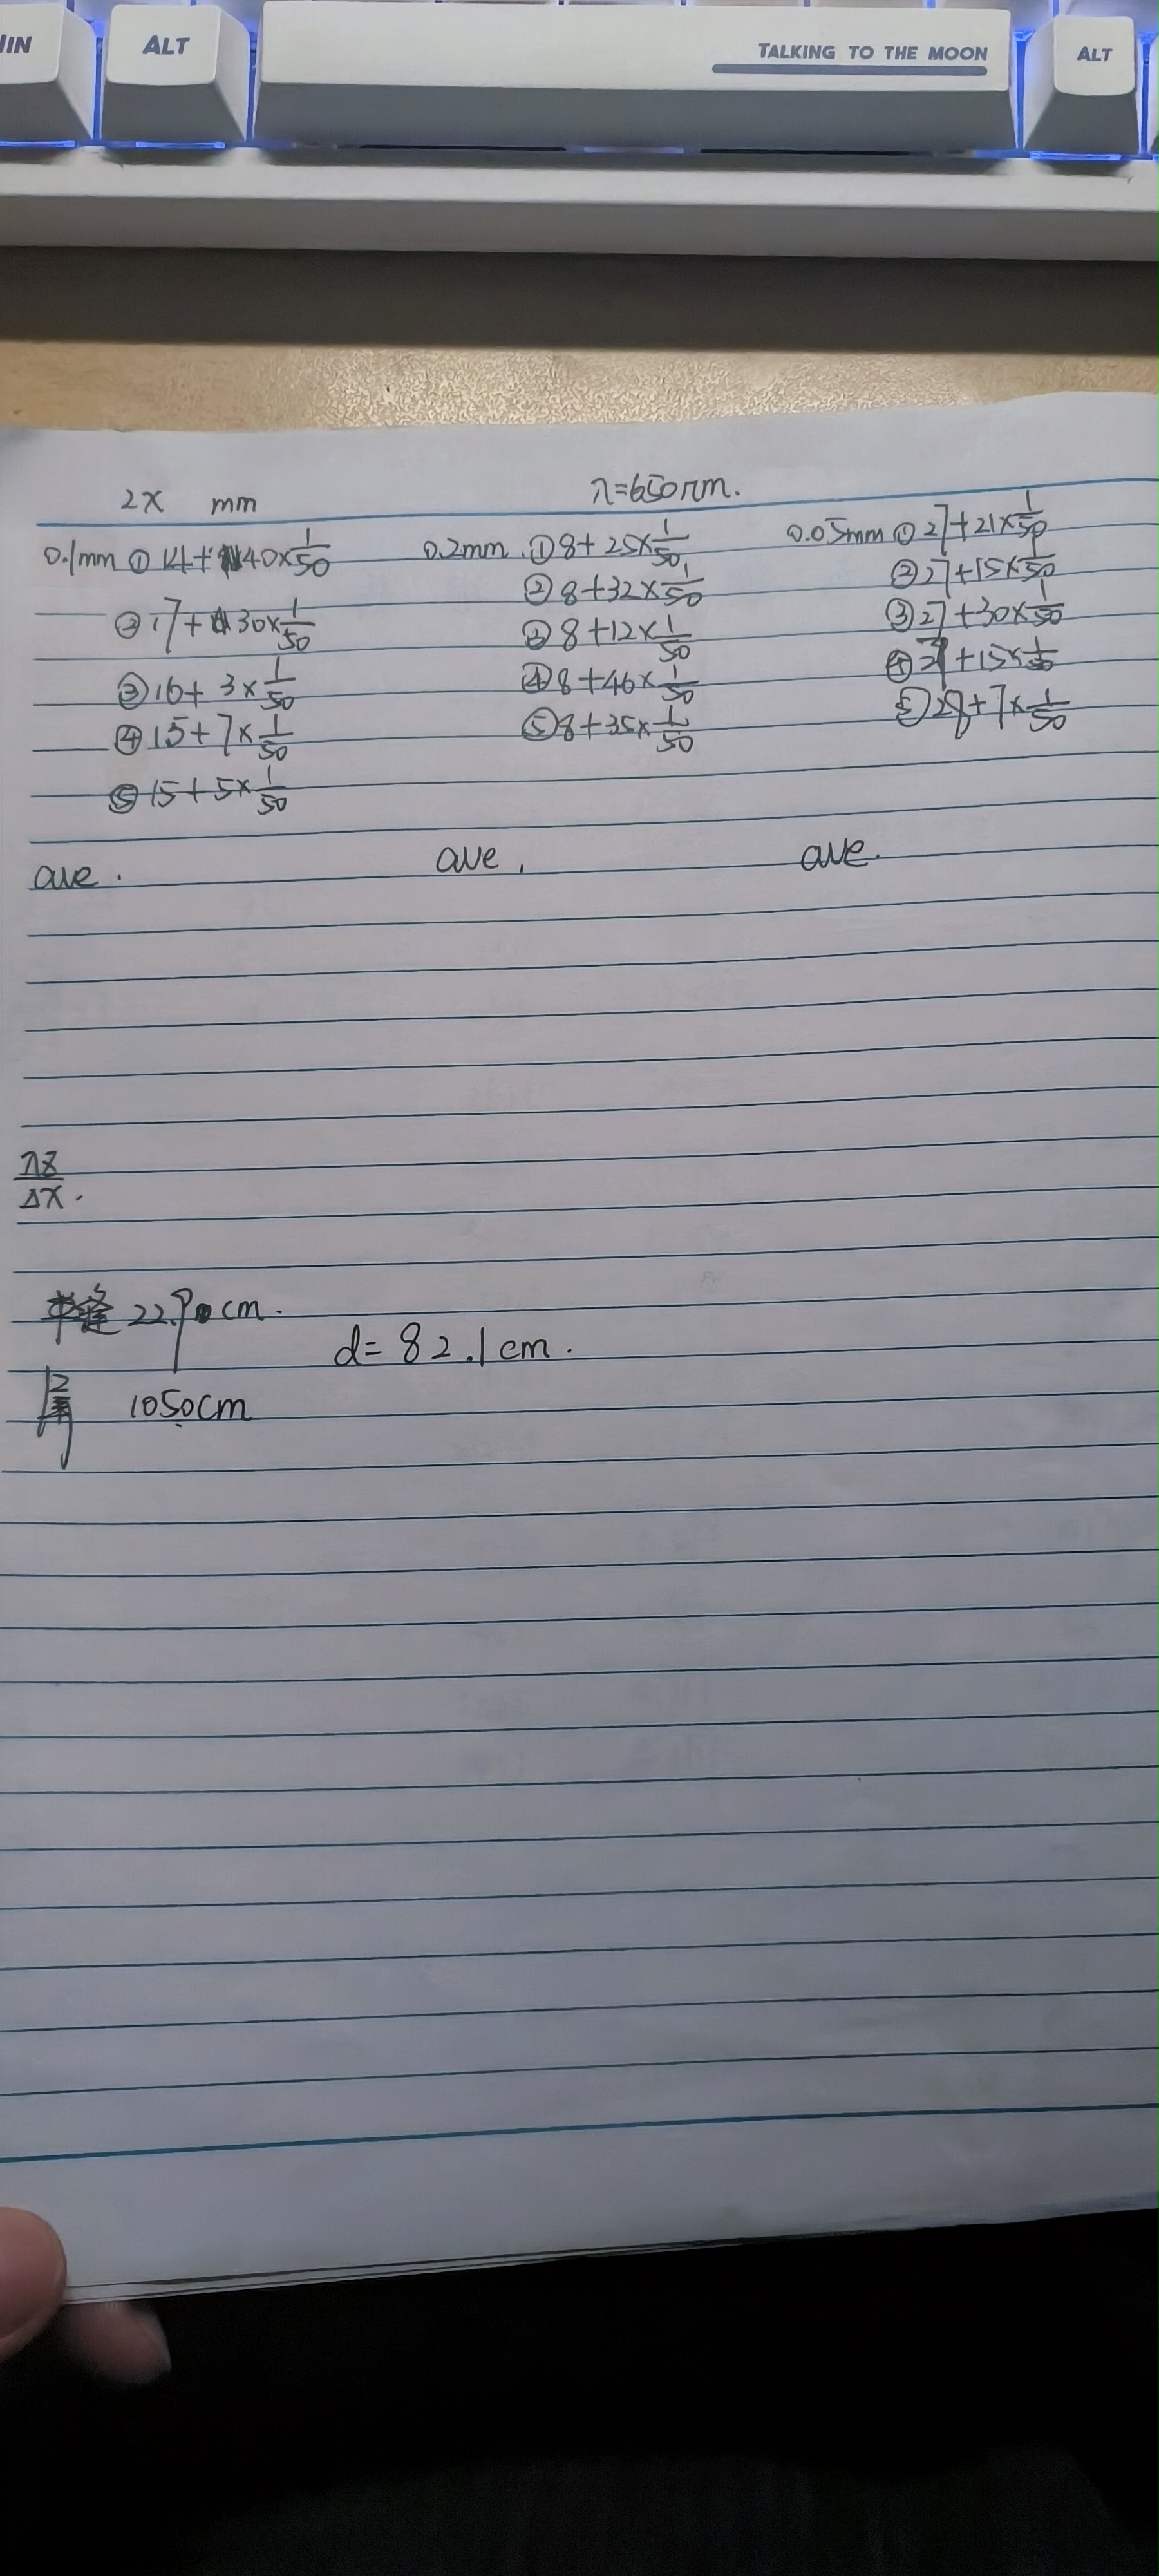 WIN ALT TALKING TO THE MOON ALT
2X mm λ=650nm.
0.1mm ① 14+40×1/50
② 17+30×1/50
③ 16+3×1/50
④ 15+7×1/50
⑤ 15+5×1/50
0.2mm ① 8+25×1/50
② 8+32×1/50
③ 8+12×1/50
④ 8+46×1/50
⑤ 8+35×1/50
0.05mm ① 27+21×1/50
② 27+15×1/50
③ 27+30×1/50
④ 27+15×1/50
⑤ 28+7×1/50
ave. ave. ave.
λz/Δx.
单缝 22.9cm.
d=82.1cm.
屏 105.0cm